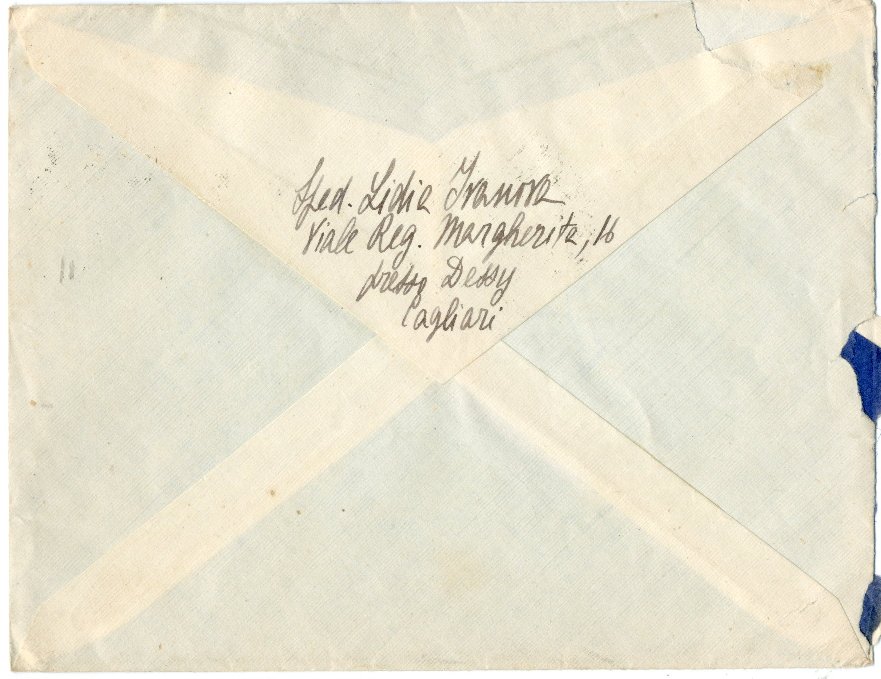 Sped. Lidia Ivanova
Viale Reg. Margherita, 16
presso Dessy
Cagliari